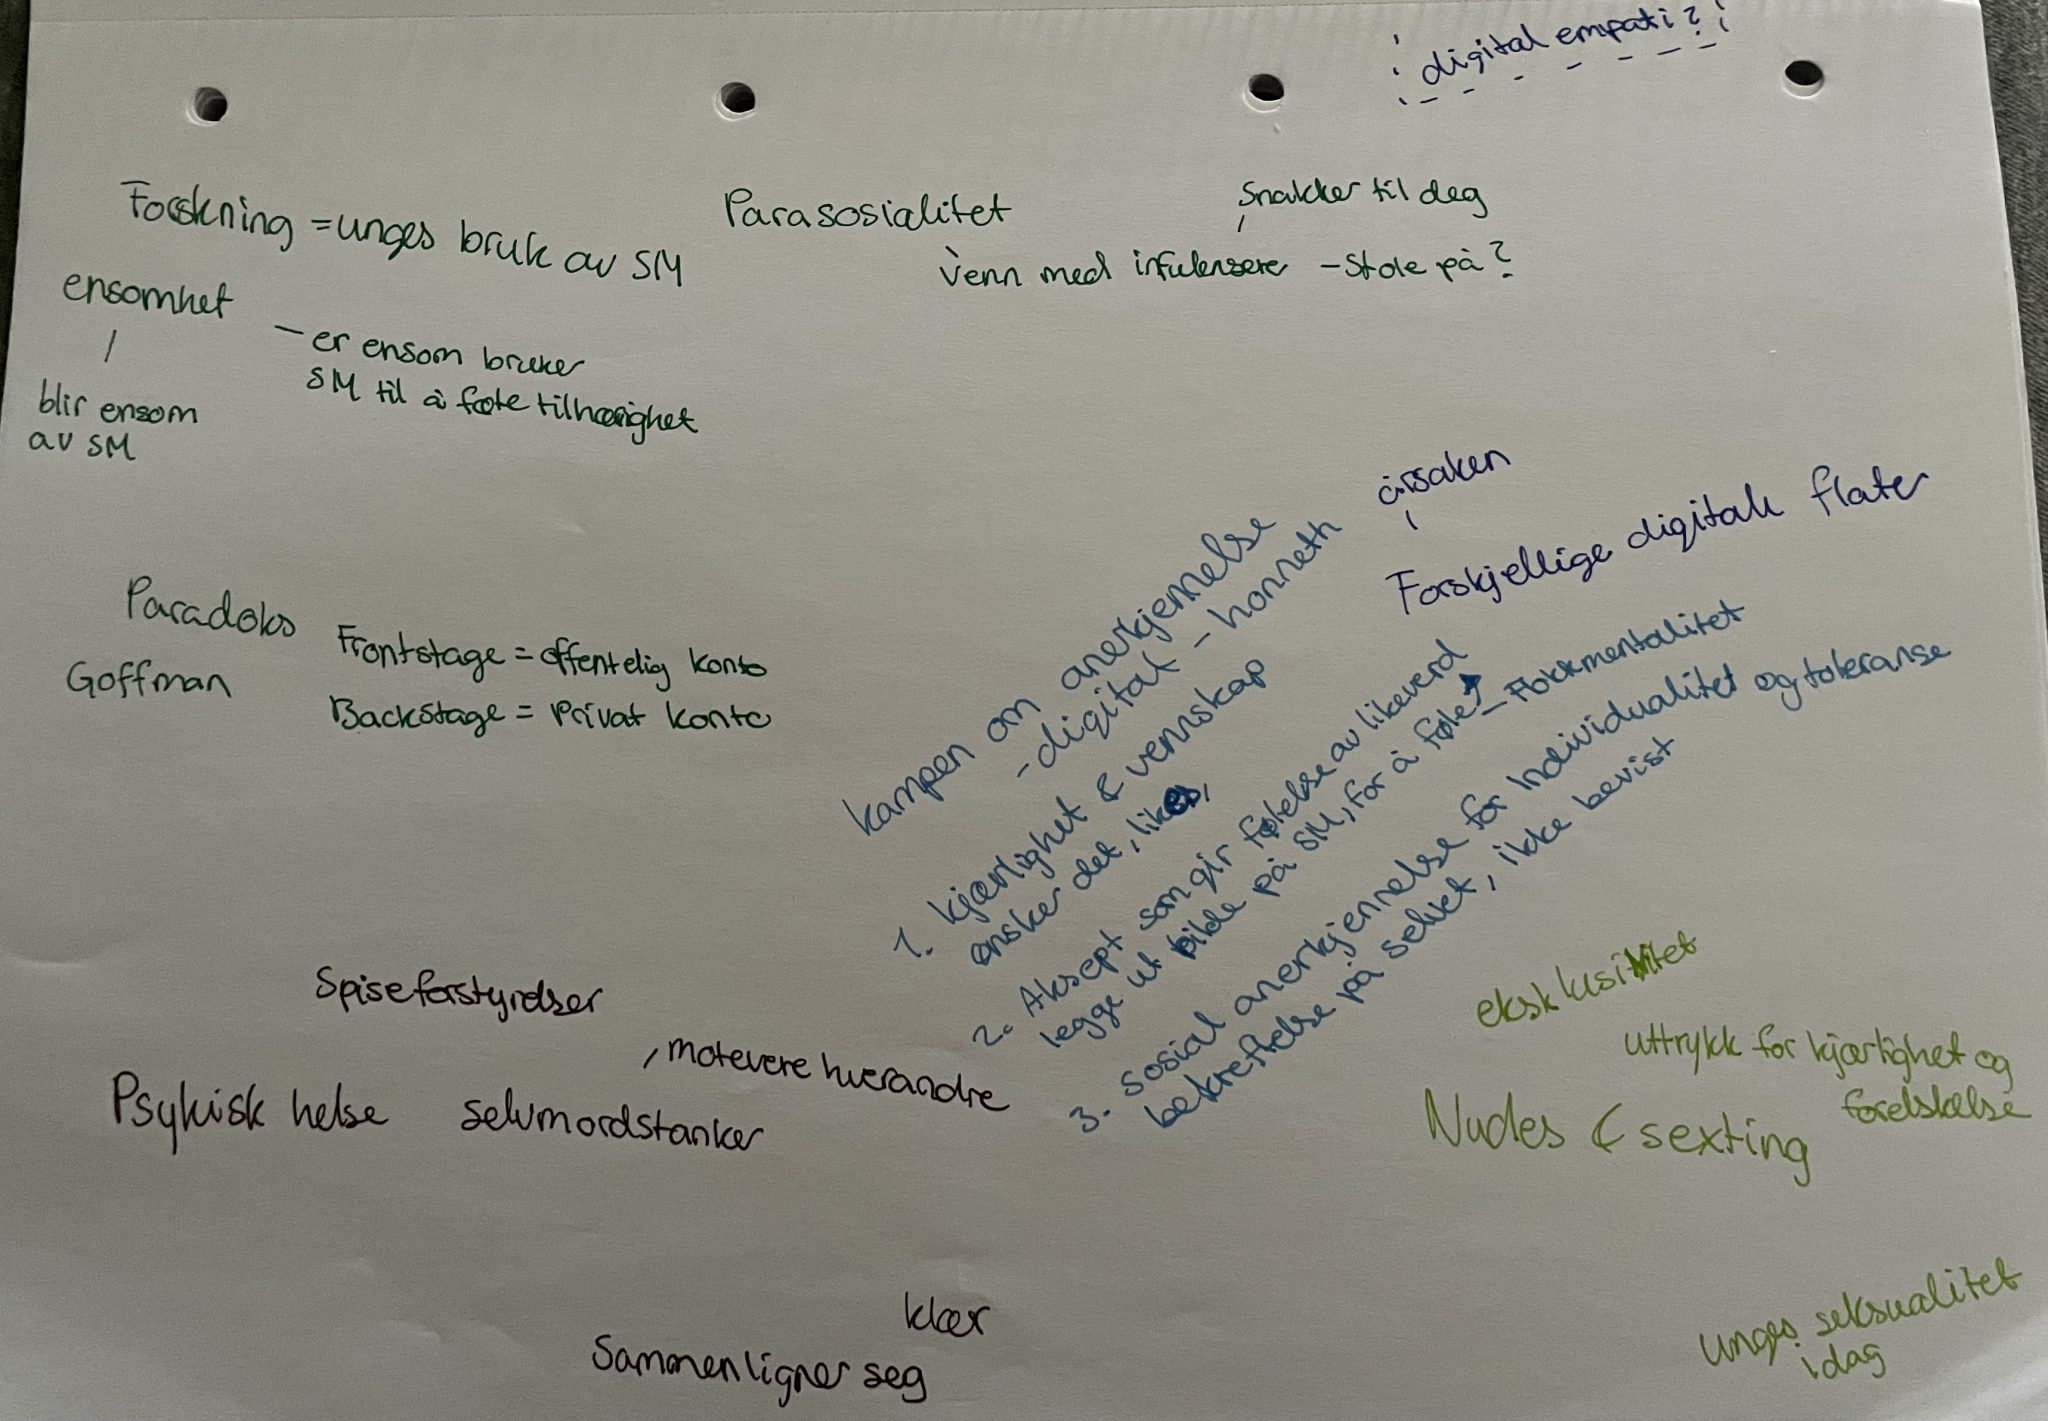 digital empati?
Forskning = unges bruk av SM
Parasosialitet
Snakker til deg
Venn med infulensere - Stole på?
ensomhet
- er ensom bruker
SM til å føle tilhørighet
blir ensom
av SM
årsaken
Forskjellige digitale flater
Paradoks
Goffman
Frontstage = offentelig konto
Backstage = Privat konto
kampen om anerkjennelse
- digital - honneth
1. kjærlighet & vennskap
ønsker det, likes,
2. Aksept som gir følelse av likeverd
legge ut bilde på SM, for å føle - Flokkmentalitet
3. sosial anerkjennelse for Individualitet og toleranse
bekreftelse på selvet, ikke bevist
Spiseforstyrrelser
, motevere hverandre
Psykisk helse
selvmordstanker
eksklusivitet
uttrykk for kjærlighet og
forelskelse
Nudes & sexting
klær
Sammenligner seg
unges seksualitet
idag